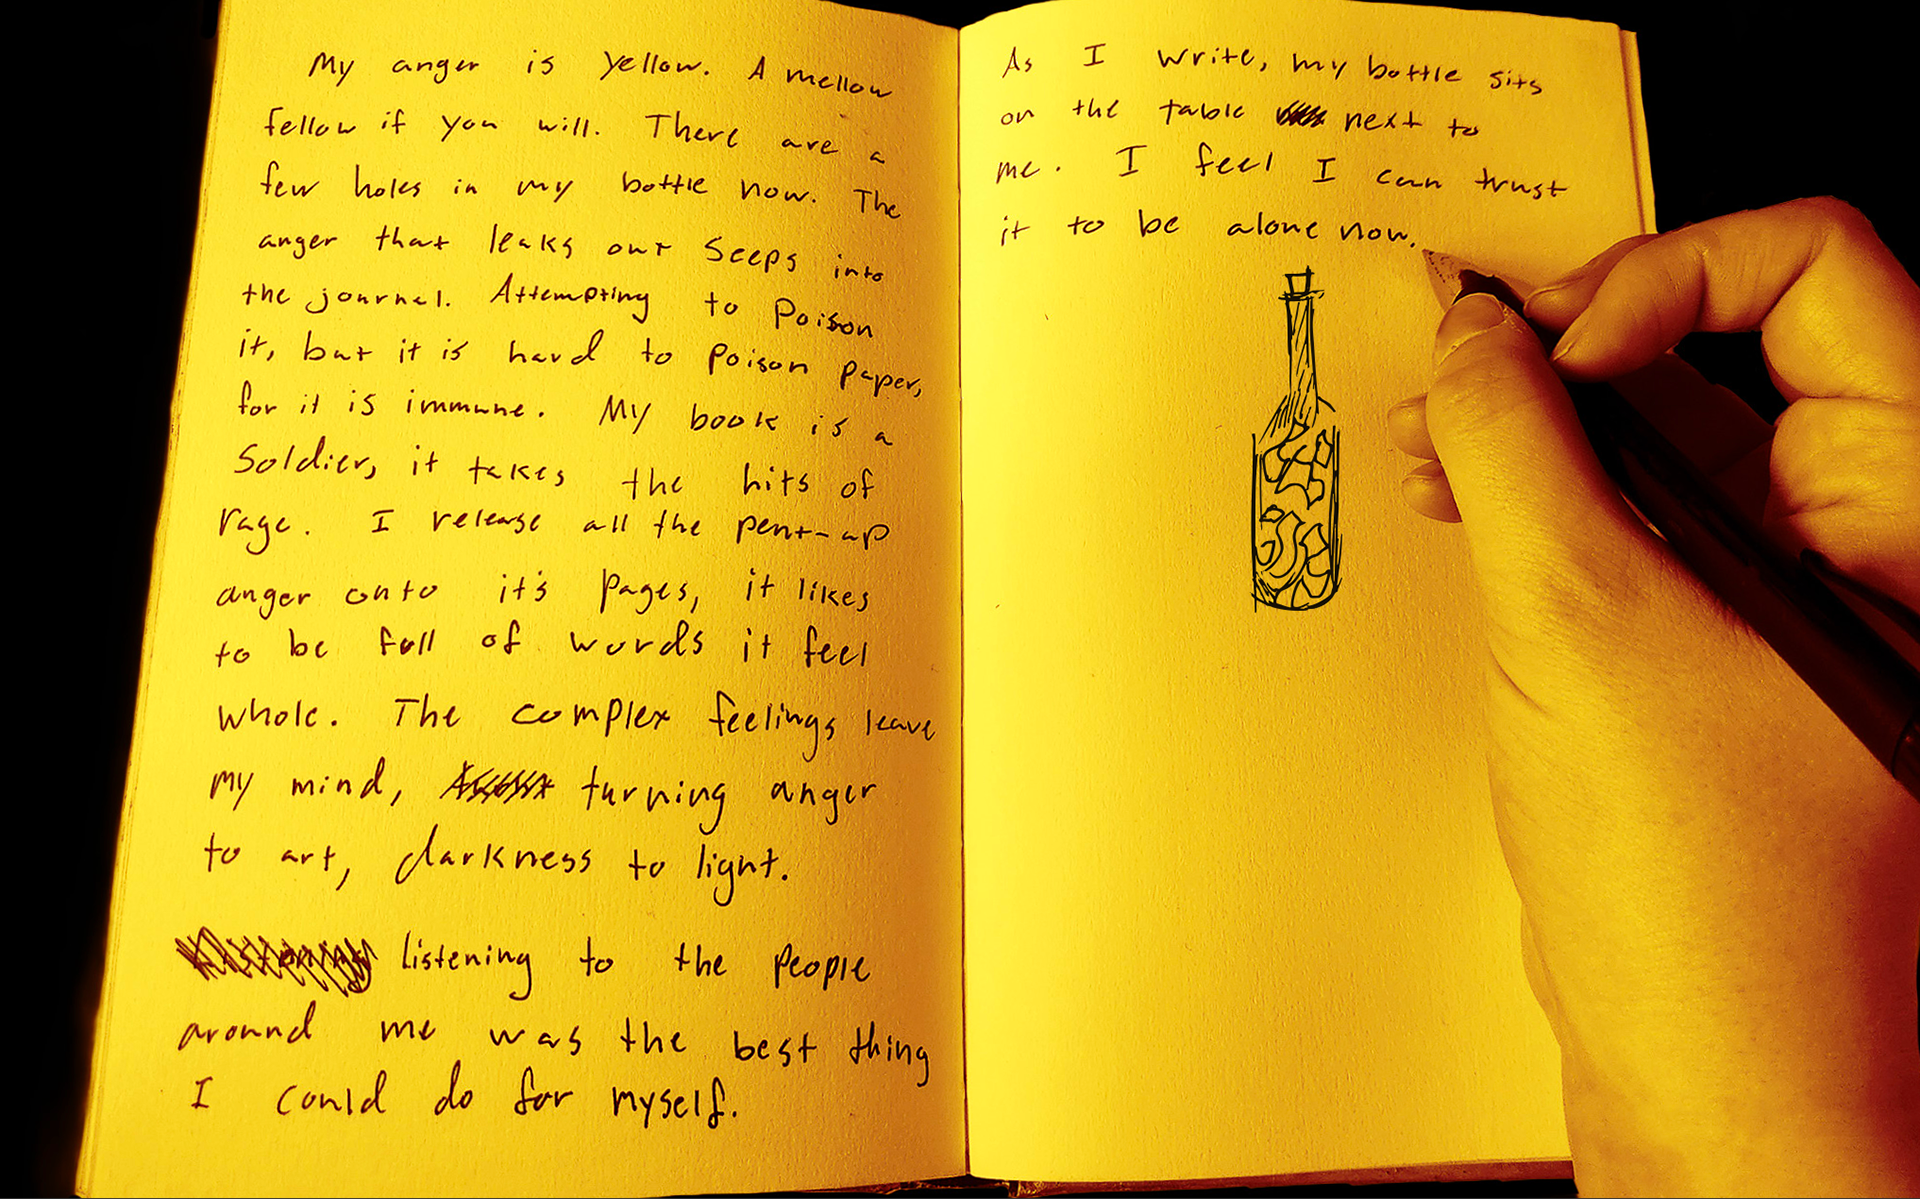 My anger is yellow. A mellow
fellow if you will. There are a
few holes in my bottle now. The
anger that leaks out seeps into
the journal. Attempting to poison
it, but it is hard to poison paper,
for it is immune. My book is a
soldier, it takes the hits of
rage. I release all the pent-up
anger onto it's pages, it likes
to be full of words it feel
whole. The complex feelings leave
my mind, turning anger
to art, darkness to light.
listening to the people
around me was the best thing
I could do for myself.
As I write, my bottle sits
on the table next to
me. I feel I can trust
it to be alone now.